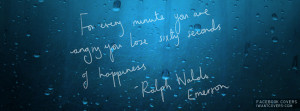 For every minute you are
angry you lose sixty seconds
of happiness
-Ralph Waldo
Emerson
FACEBOOK COVERS